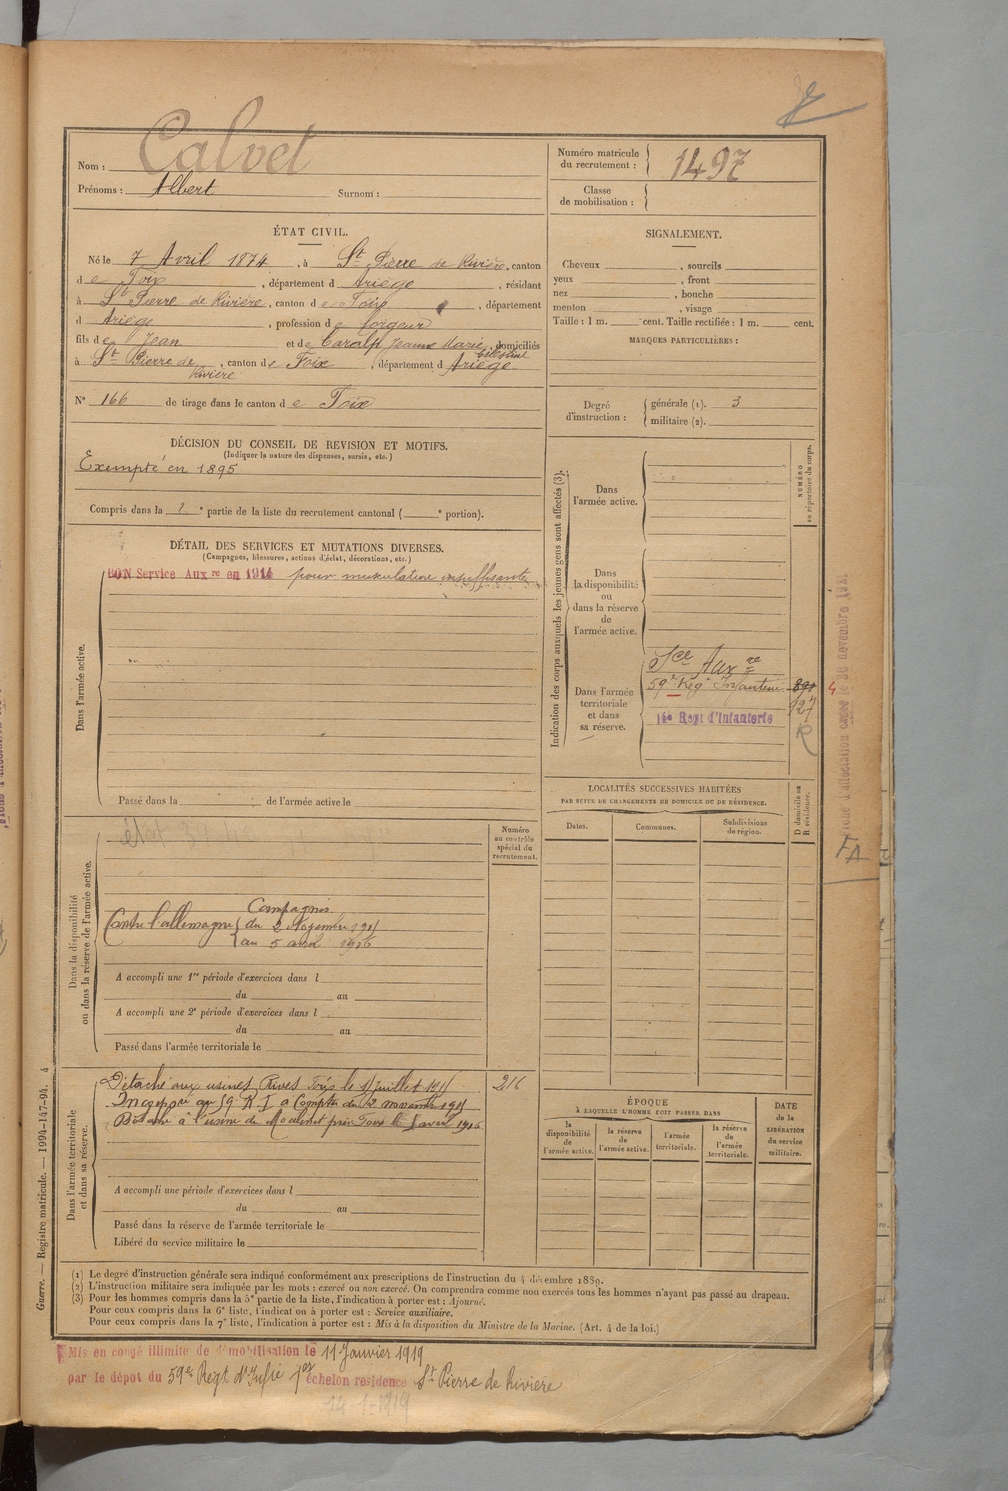 Nom : Calvet
Prénoms : Albert Surnom :
Numéro matricule du recrutement : 1497
Classe de mobilisation :
ÉTAT CIVIL.
Né le 7 Avril 1874, à St Pierre de Rivière, canton
de Foix, département d Ariège, résidant
à St Pierre de Rivière, canton de Foix, département
d Ariège, profession de forgeur
fils de Jean et de Caralp Jeanne Marie Célestine, domiciliés
à St Pierre de Rivière, canton de Foix, département d Ariège
N° 166 de tirage dans le canton de Foix
SIGNALEMENT.
Cheveux , sourcils
yeux , front
nez , bouche
menton , visage
Taille : 1 m. cent. Taille rectifiée : 1 m. cent.
MARQUES PARTICULIÈRES :
Degré d'instruction : générale (1). 3
militaire (2).
DÉCISION DU CONSEIL DE REVISION ET MOTIFS.
(Indiquer la nature des dispenses, sursis, etc.)
Exempté en 1895
Compris dans la e partie de la liste du recrutement cantonal ( e portion).
DÉTAIL DES SERVICES ET MUTATIONS DIVERSES.
(Campagnes, blessures, actions d'éclat, décorations, etc.)
Dans l'armée active.
BON Service Aux re en 1914 pour musculature insuffisante
Passé dans la de l'armée active le
Indication des corps auxquels les jeunes gens sont affectés (3).
NUMÉRO au répertoire du corps.
Dans l'armée active.
Dans la disponibilité ou dans la réserve de l'armée active.
Dans l'armée territoriale et dans sa réserve.
Sce Aux re
59e Regt Infanterie 891 4
127
14e Regt d'Infanterie
R
LOCALITÉS SUCCESSIVES HABITÉES
PAR SUITE DE CHANGEMENTS DE DOMICILE OU DE RÉSIDENCE.
D domicile ou R résidence.
Dates. Communes. Subdivisions de région.
FA
Dans la disponibilité ou dans la réserve de l'armée active.
Numéro au contrôle spécial du recrutement.
Campagnes
Contre l'allemagne du 2 Novembre 1915
au 5 avril 1916
A accompli une 1re période d'exercices dans l
du au
A accompli une 2e période d'exercices dans l
du au
Passé dans l'armée territoriale le
Dans l'armée territoriale et dans sa réserve.
Détaché aux usines Rives Foix le 1 juillet 1915 216
Incorporé au 59 R I a Compter du 2 novembre 1915
Détaché à l'usine du Moulinet près Foix le 5 avril 1916.
A accompli une période d'exercices dans l
du au
Passé dans la réserve de l'armée territoriale le
Libéré du service militaire le
ÉPOQUE
À LAQUELLE L'HOMME DOIT PASSER DANS
la disponibilité de l'armée active.
la réserve de l'armée active.
l'armée territoriale.
la réserve de l'armée territoriale.
DATE de la LIBÉRATION du service militaire.
(1) Le degré d'instruction générale sera indiqué conformément aux prescriptions de l'instruction du 4 décembre 1889.
(2) L'instruction militaire sera indiquée par les mots : exercé ou non exercé. On comprendra comme non exercés tous les hommes n'ayant pas passé au drapeau.
(3) Pour les hommes compris dans la 5e partie de la liste, l'indication à porter est : Ajourné.
Pour ceux compris dans la 6e liste, l'indication à porter est : Service auxiliaire.
Pour ceux compris dans la 7e liste, l'indication à porter est : Mis à la disposition du Ministre de la Marine. (Art. 4 de la loi.)
Guerre. — Registre matricule. — 1994-147-94. 4
Mis en congé illimité de démobilisation le 11 Janvier 1919
par le dépôt du 59e Regt d'Infie 1er échelon résidence St Pierre de Rivière
14-1-1919